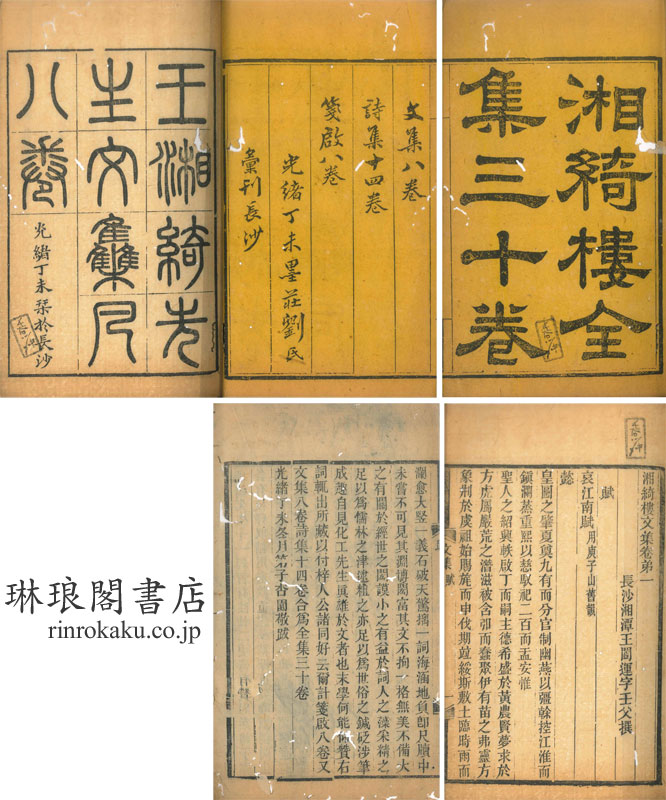 湘綺樓全
集三十卷
文集八卷
詩集十四卷
箋啟八卷
光緒丁未墨莊劉氏
彙刊長沙
王湘綺先
生文集凡
八卷
光緒丁未栞於長沙
湘綺樓文集卷弟一
長沙湘潭王闓運字壬父撰
賦
哀江南賦用庾子山舊韻
懿
皇圖之肇夏奠九有而分官制幽燕以彊榦控江淮而
鎮瀾蒸重熙以慈馭祀二百而盂安惟
聖人之紹興軼啟丁而嗣主德希盛於黃農賢夢求於
方虎厲嚴荒之潛滋被含弘而蠢聚伊有苗之弗靈方
象刑於虞祖始賜旄而申伐期竝綏斯敷土臨時雨而
文集 賦
瀾愈大竪一義石破天驚摛一詞海涵地負即尺牘中
未嘗不可見其淵博閎富其文不拘一格無美不備大
之有關於經世之閎謨小之有益於詞人之藻采精之
足以爲儒林之津逮粗之亦足以爲世俗之鍼砭涉筆
成趣自見化工先生眞雄於文者也末學何能仰贊右
詞輒出所藏以付梓人公諸同好云爾計箋啟八卷又
文集八卷詩集十四卷合爲全集三十卷
光緒丁未冬月子杏圃敬跋
琳琅閣書店
rinrokaku.co.jp